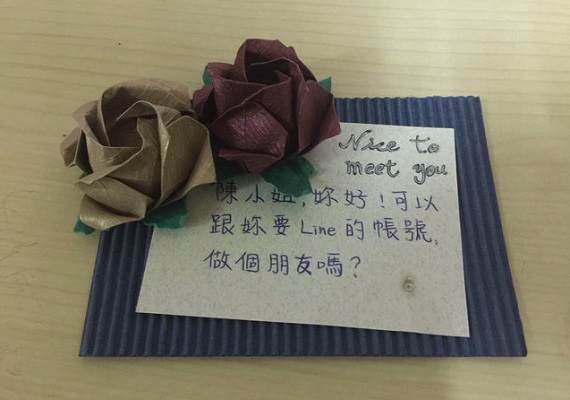 Nice to
meet you
陳小姐,妳好!可以
跟妳要Line的帳號,
做個朋友嗎?